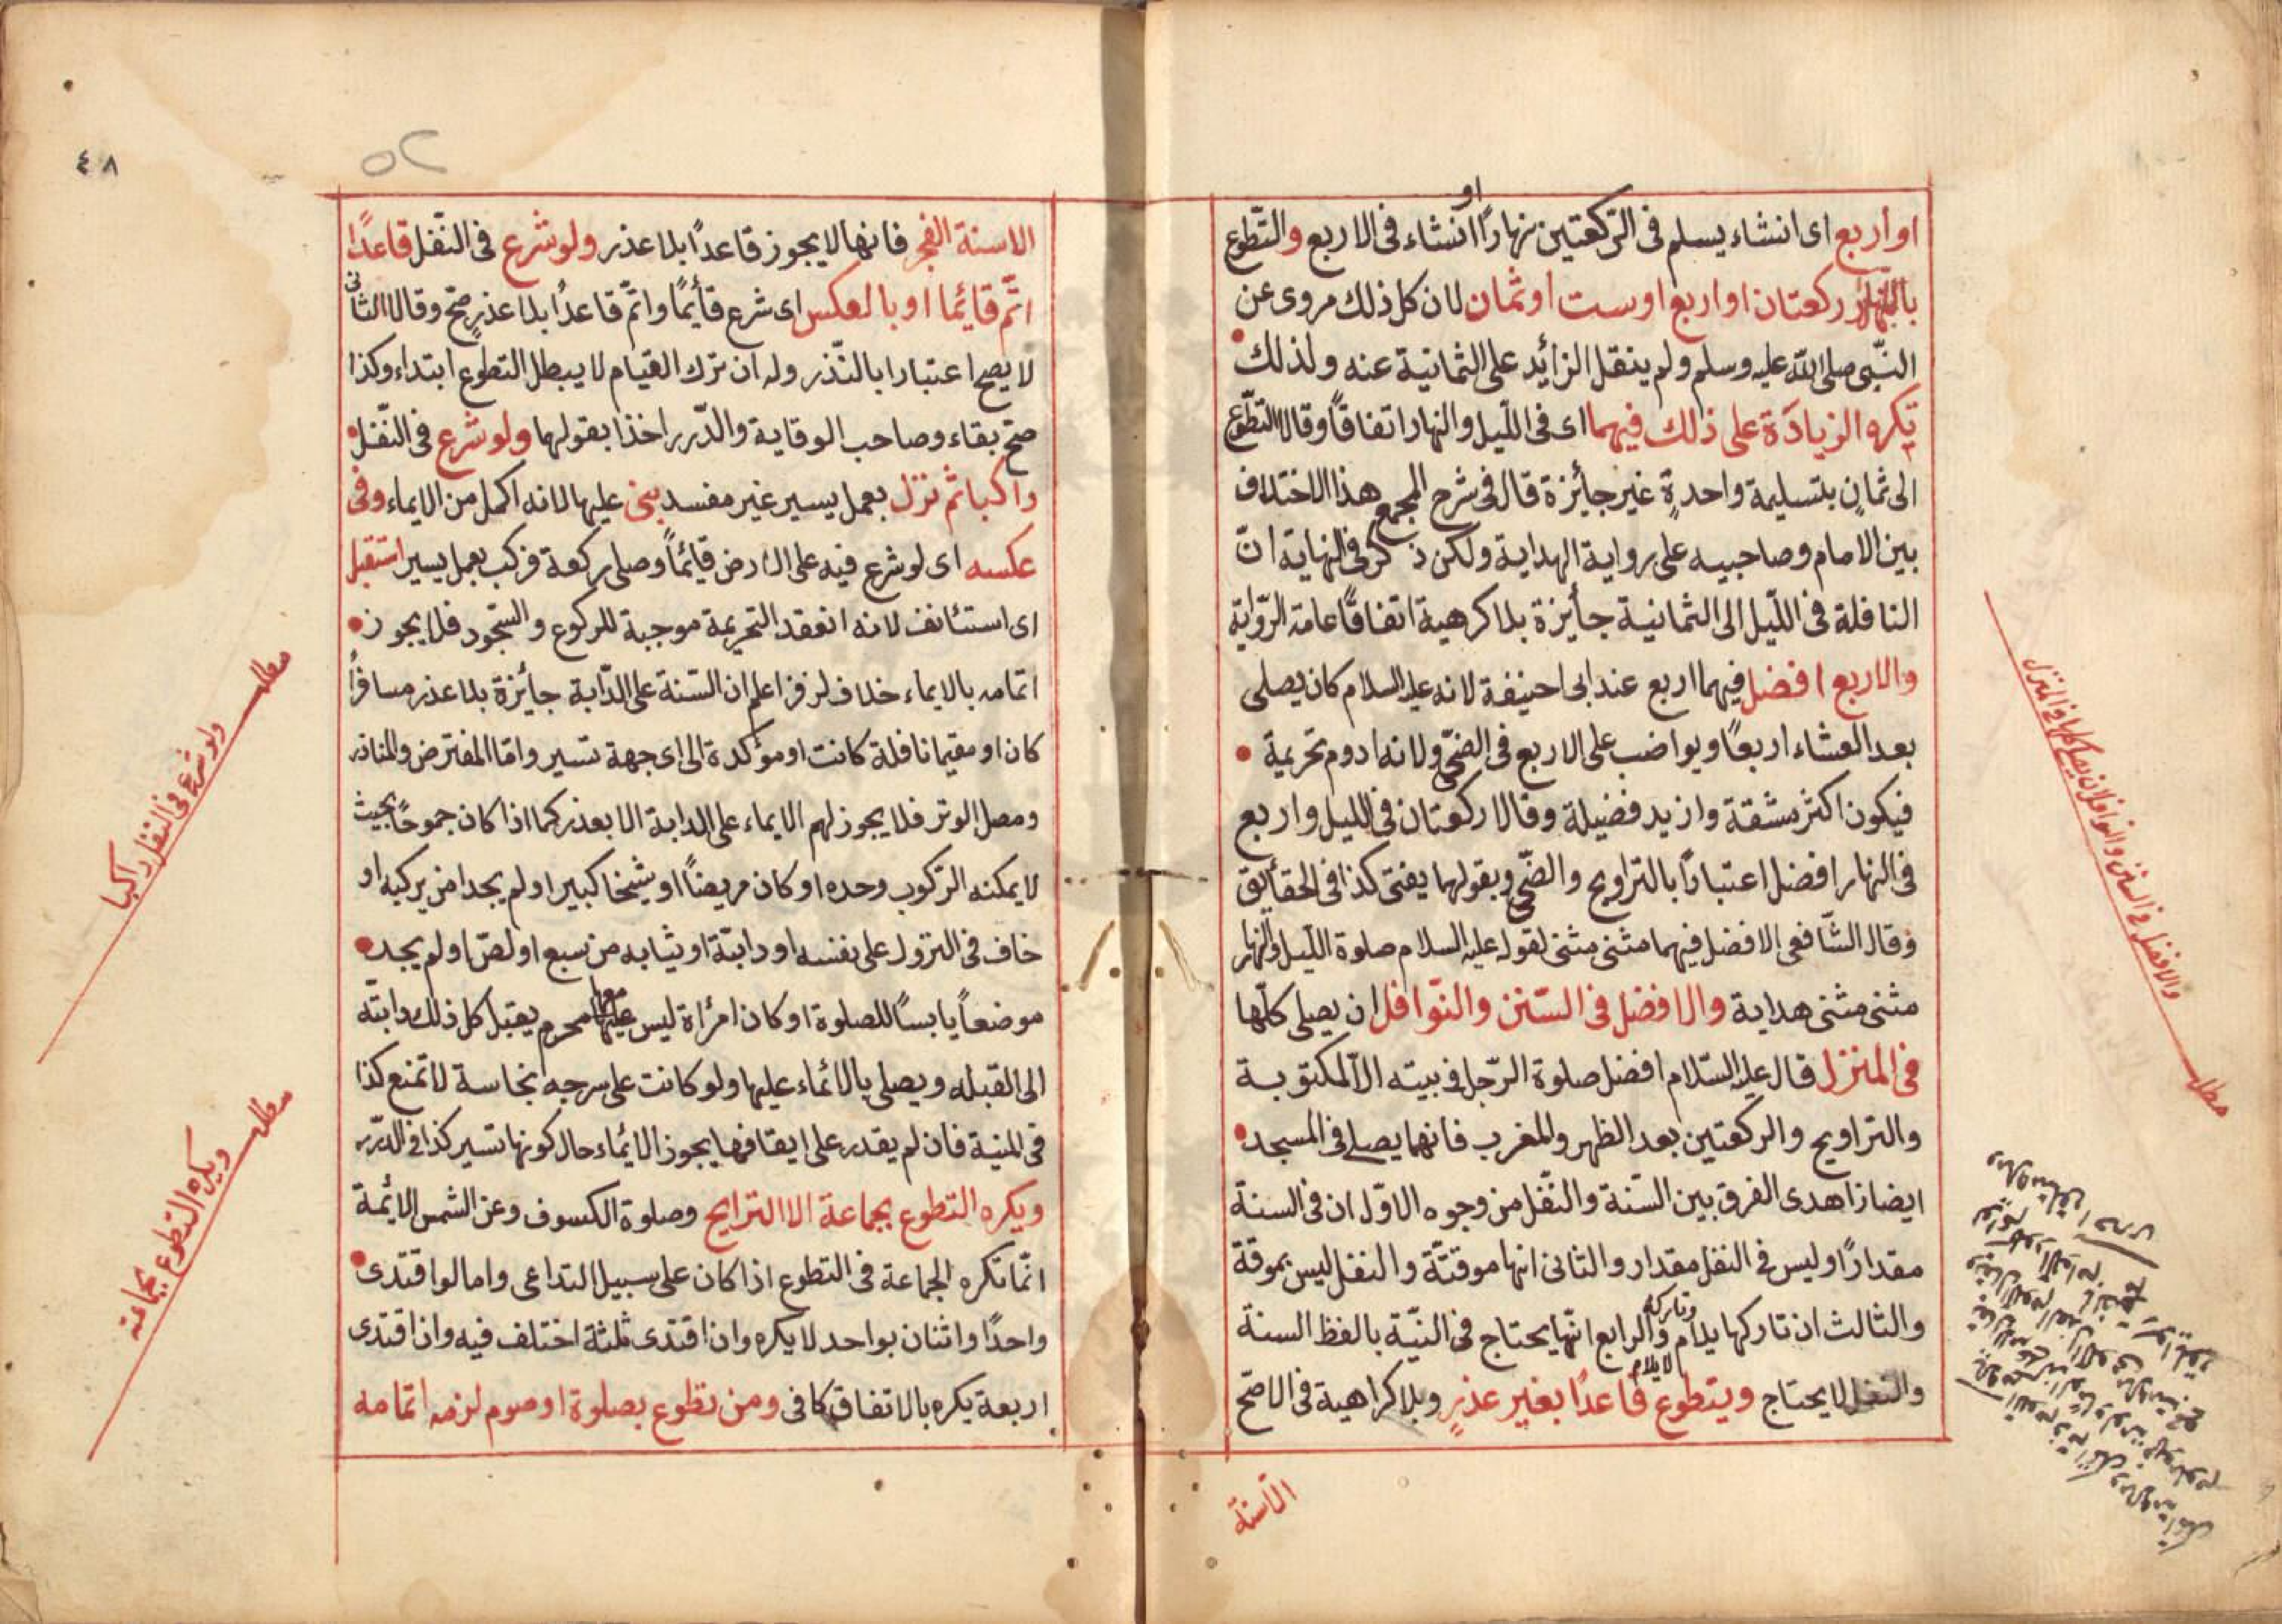 او اربع اى ان شاء يسلم فى الركعتين نهارًا او ان شاء فى الاربع والتّطوع
ركعتان او اربع او ست او ثمان لان كل ذلك مروى عن
النّبى صلى الله عليه وسلم ولم ينقل الزائد على الثمانية عنه ولذلك
تكره الزيادة على ذلك فيهما اى فى اللّيل والنهار اتفاقًا وقالا التطّوع
الى ثمانٍ بتسليمة واحدةٍ غير جائزة قال فى شرح المجمع هذا الاختلاف
بين الامام وصاحبيه على رواية الهداية ولكن ذكر فى النهاية انّ
النافلة فى اللّيل الى الثمانية جائزة بلا كرهية اتفاقًا عامة الرّواية
والاربع افضل فيهما اربع عند ابى احنيفة لانه عليه السلام كان يصلى
بعد العشاء اربعًا ويواضب على الاربع فى الضحّى ولانه ادوم تحريمة
فيكون اكثر مشقة وازيد فضيلة وقالا ركعتان فى الليل واربع
فى النهار افضل اعتبارًا بالتراويح والضّحى وبقولهما يفتى كذا فى الحقايق
وقال الشّافعى الافضل فيهما مثنى مثنى لقوله عليه السلام صلوة اللّيل والنهار
مثنى مثنى هداية والافضل فى السّنن والنّوافل ان يصلى كلّها
فى المنزل قال عليه السّلام افضل صلوة الرّجل فى بيته الّا المكتوبة
والتراويح والركعتين بعد الظهر والمغرب فانهما يصلى فى المسجد
ايضا زاهدى الفرق بين السّنة والنّفل من وجوه الاوّل ان فى السنة
مقدارًا وليس فى النفل مقدار والثانى انها موقتّة والنفل ليس بموقة
والثالث ان تاركها يلام وتاركه لا يلام والرابع انّها يحتاج فى النيّة بالفظ السنة
والنفل لا يحتاج ويتطوع قاعدًا بغير عذرٍ وبلا كراهية فى الاصّح
الا سنة
والافضل فى السنن والنوافل ان يصلى كلها فى المنزل
مطلب
٤٨
٥٢
الا سنة الفجر فانها لا يجوز قاعدًا بلا عذر ولو شرع فى النّفل قاعدًا
اتّم قائما او بالعكس اى شرع قأيمًا واتّم قاعدًا بلا عذرٍ صّح وقالا الثانى
لا يصح اعتبارا بالنّذر وله ان ترك القيام لا يبطل التطوع ابتداء وكذا
صحّ بقاء وصاحب الوقاية والدّرر اخذا بقولهما ولو شرع فى النّفل
راكبا ثم نزل بعمل يسير غير مفسد بنى عليها لانه اكمل من الايماء وفى
عكسه اى لو شرع فيه على الارض قائمًا وصلى ركعة فركب بعمل يسير استقبل
اى استئانف لانه انعقد التحريمة موجبة للركوع والسّجود فلا يجوز
اتمامه بالايماء خلاف لزفر اعلم ان السّنة على الدّابة جائزة بلا عذر مسافرًا
كان او مقيما نافلة كانت او مؤكدة الى اى جهة تسير وامّا المفترض والمناذر
ومصل الوتر فلا يجوز لهم الايماء على الدابة الا بعذر كما اذا كان جموحًا بحيث
لا يمكنه الركوب وحده او كان مريضًا او شيخا كبيرا ولم يجد من يركبه او
خاف فى النزول على نفسه او دابتّه او ثيابه من سبع او لصّ او لم يجد
موضعًا يابسًا للصلوة او كان امرأة ليس معها محرم يقبل كل ذلك دابتّه
الى القبله ويصلى بالائماء عليها ولو كانت على سرجه نجاسة لا تمنع كذا
فى المنية فان لم يقدر على ايقافها يجوز الائماء حال كونها تسير كذا فى الدّرر
ويكره التطوع بجماعة الا التراويح وصلوة الكسوف وعن الشمس الائمة
انّما تكره الجماعة فى التطوع اذا كان على سبيل التداعى واما لو اقتدى
واحدًا واثنان بواحد لا يكره وان اقتدى ثلثة اختلف فيه وان اقتدى
اربعة يكره بالاتفاق كافى ومن تطوع بصلوة او صوم لزمه اتمامه
مطلب
ولو شرع فى النفل راكبا
مطلب
ويكره التطوع بجماعة